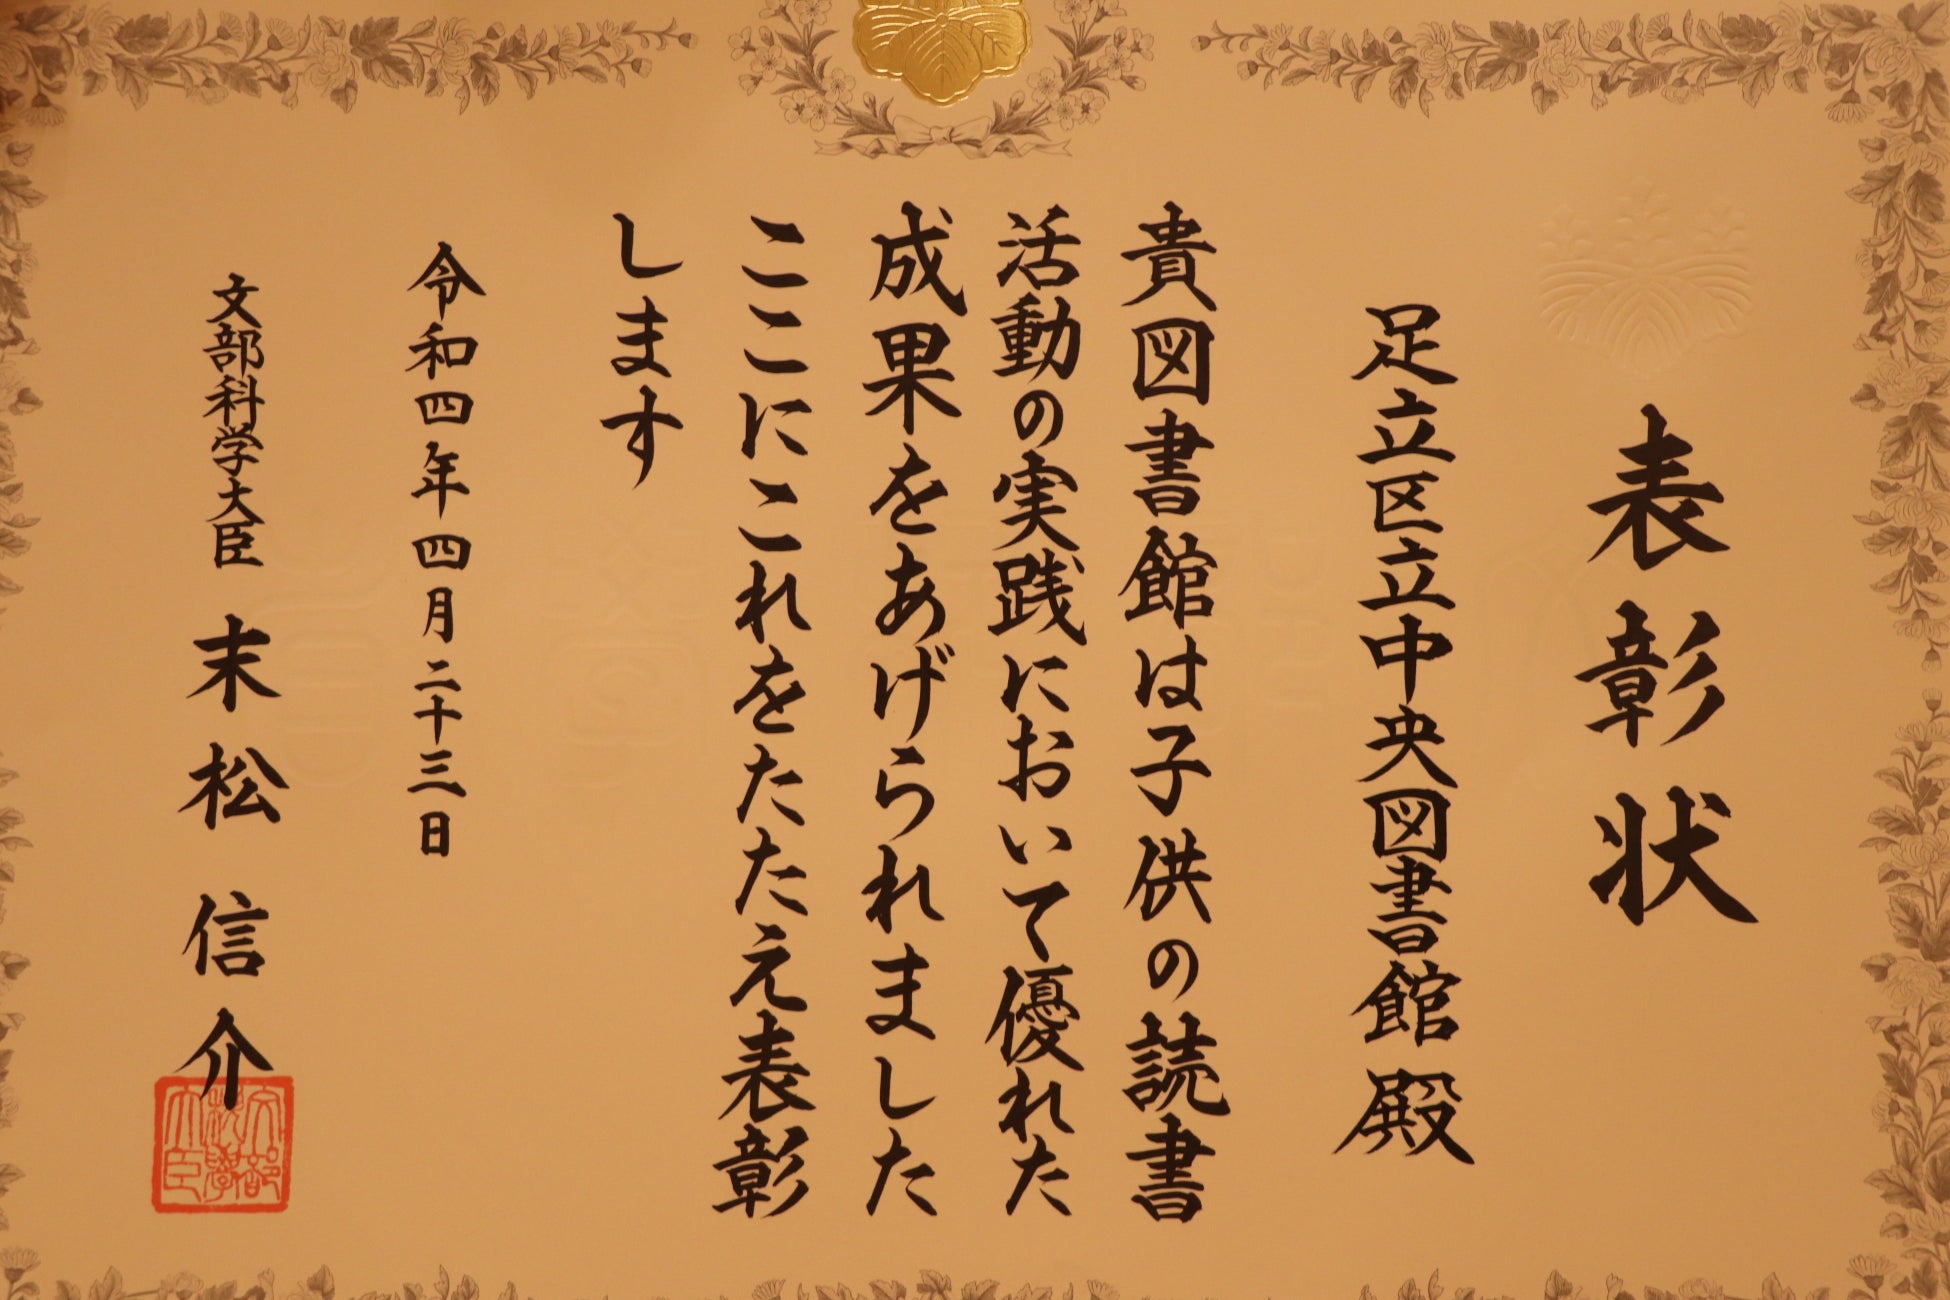 表彰状
足立区立中央図書館 殿
貴図書館は子供の読書
活動の実践において優れた
成果をあげられました
ここにこれをたたえ表彰
します
令和四年四月二十三日
文部科学大臣 末松信介